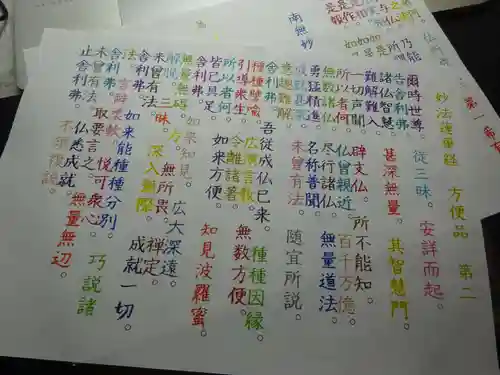 妙法蓮華経 方便品 第二
爾時世尊。従三昧。安詳而起。
告舎利弗。
諸仏智慧。甚深無量。其智慧門。
難解難入。
一切声聞。辟支仏。所不能知。
所以者何。仏曾親近。百千万億。
無数諸仏。尽行諸仏。無量道法。
勇猛精進。名称普聞。
成就甚深。未曾有法。随宜所説。
意趣難解。
舎利弗。吾従成仏已来。種種因縁。
種種譬喩。広演言教。無数方便。
引導衆生。令離諸著。
所以者何。如来方便。知見波羅蜜。
皆已具足。
舎利弗。如来知見。広大深遠。
無量無碍。力。無所畏。禅定。
解脱。三昧。深入無際。成就一切。
未曾有法。
舎利弗。如来能種種分別。巧説諸
法。言辞柔軟。悦可衆心。
舎利弗。取要言之。無量無辺。
未曾有法。仏悉成就。
止舎利弗。不須復説。
南無妙